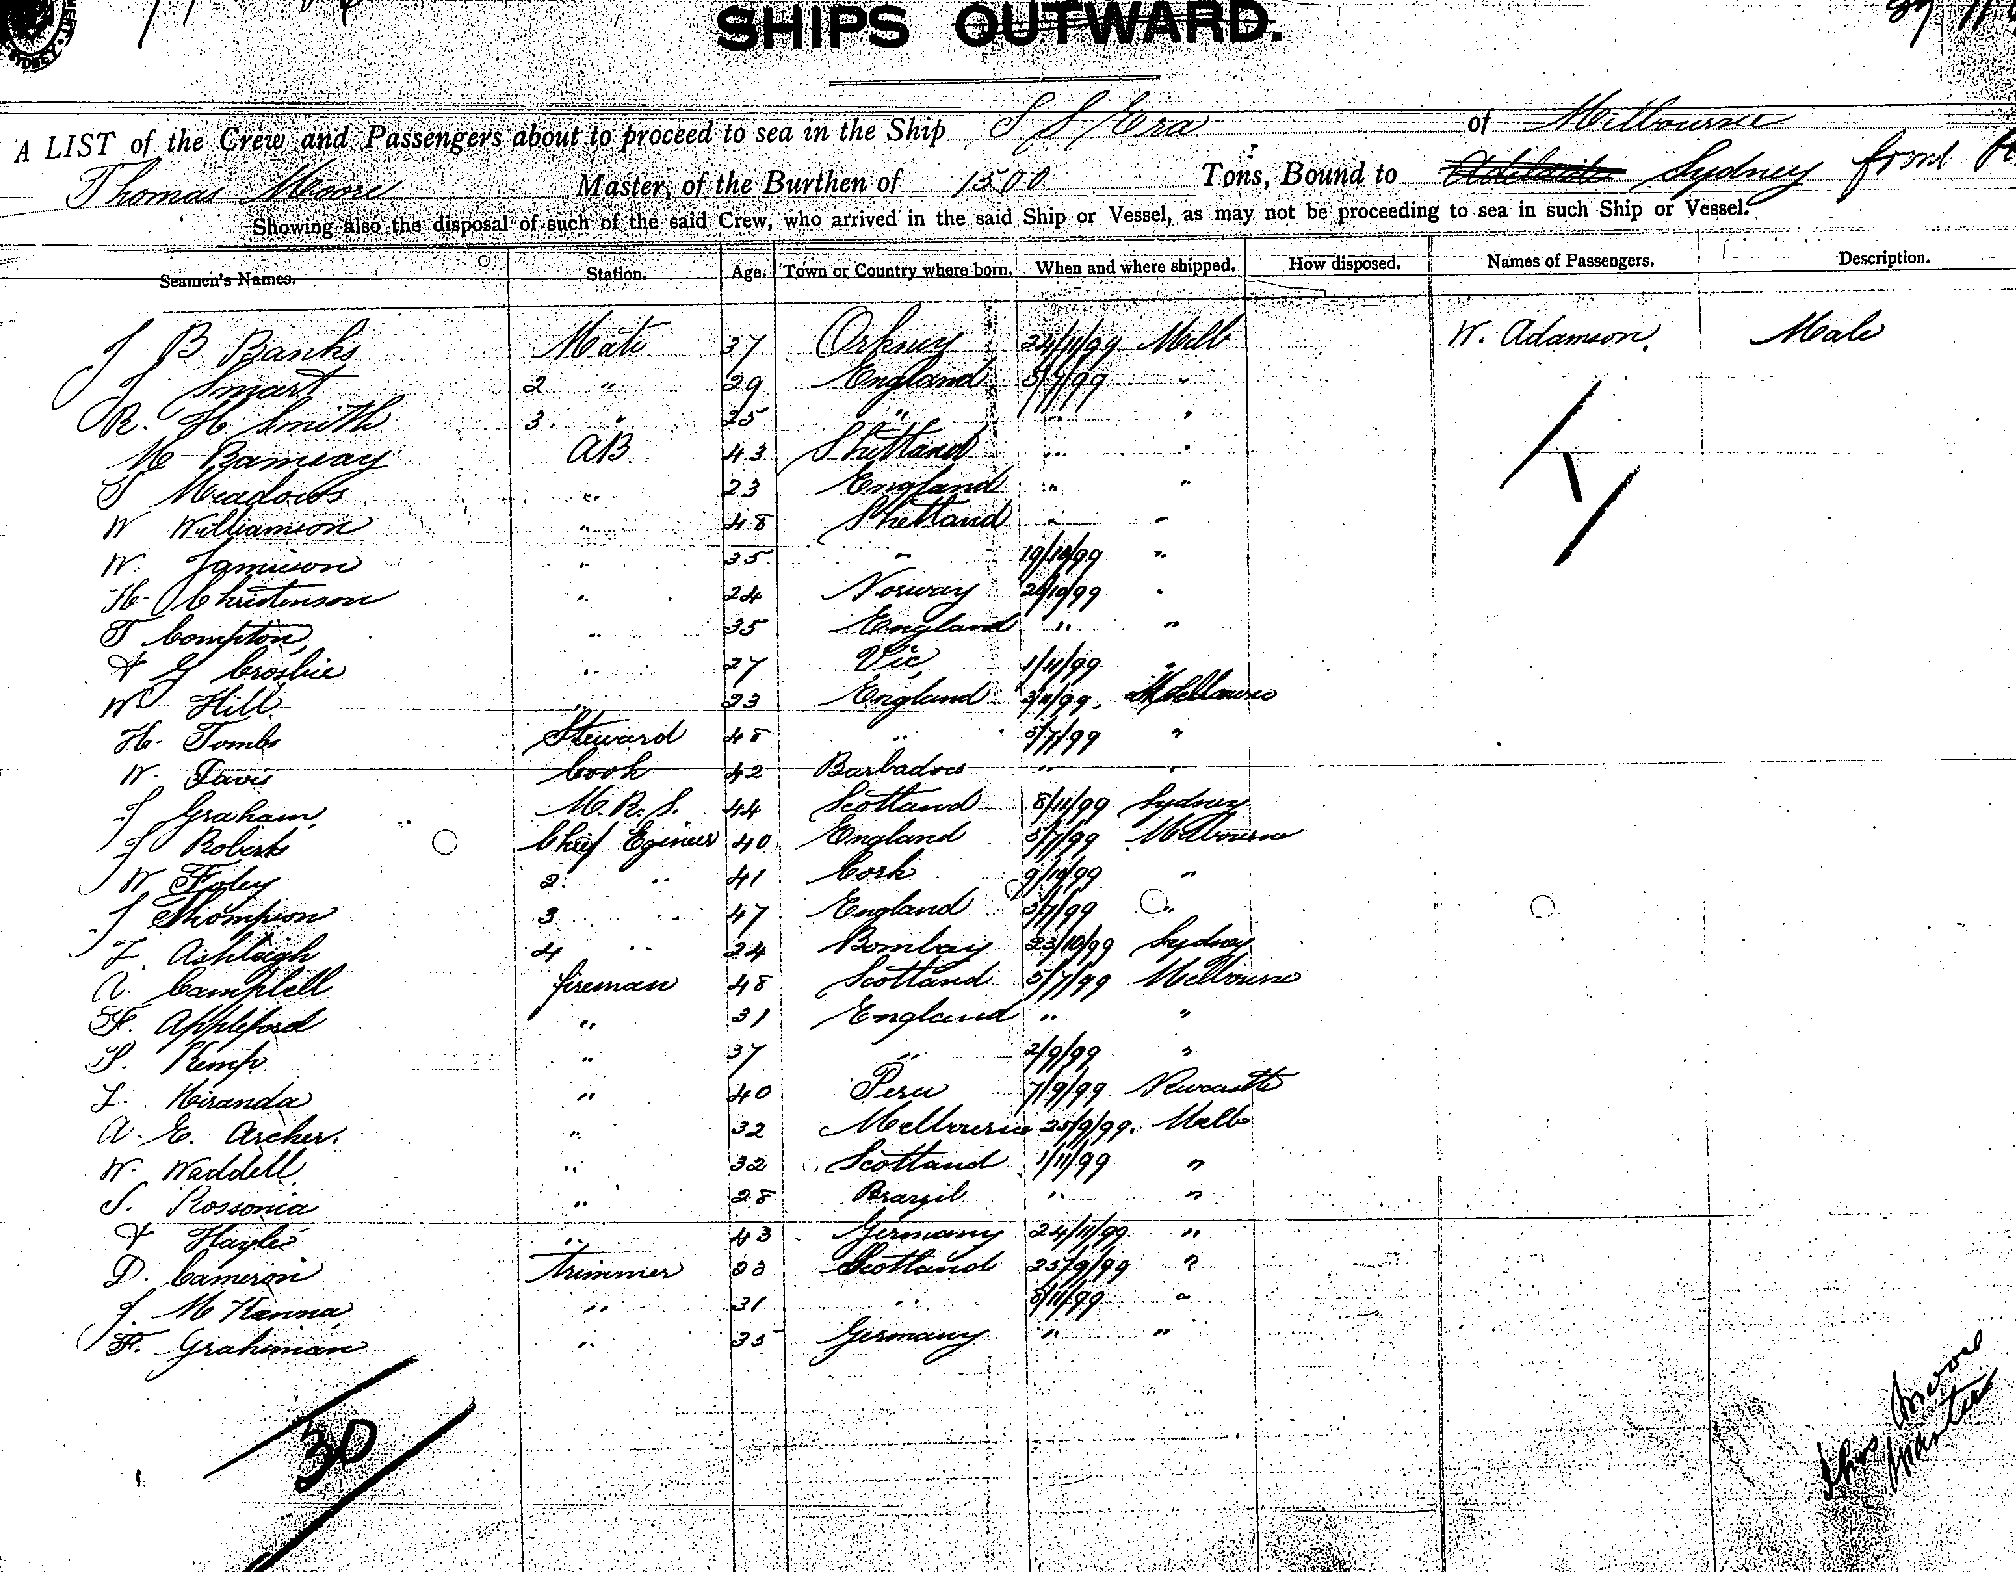 SHIPS OUTWARD.
A LIST of the Crew and Passengers about to proceed to sea in the Ship S S Era of Melbourne
Thomas Moore Master, of the Burthen of 1500 Tons, Bound to Adelaide Sydney from
Showing also the disposal of such of the said Crew, who arrived in the said Ship or Vessel, as may not be proceeding to sea in such Ship or Vessel.
Seamen's Names. Station. Age. Town or Country where born. When and where shipped. How disposed. Names of Passengers. Description.
J B Banks Mate 37 Orkney 24/11/99 Melb W. Adamson. Male
J Smart 2 " 29 England 5/7/99 "
R. H Smith 3 " 25 " " "
AB 43 Shetland " "
S Meadows " 23 England " "
W Williamson " 48 Shetland " "
W. Jamieson " 35 " 19/10/99 "
H. Christenson " 24 Norway 26/10/99 "
T Compton " 35 England " "
& G Crosbie " 27 Vic 1/11/99 "
W Hill " 23 England Melbourne
H. Tombs Steward 48 " 5/7/99 "
W. Davis Cook 42 Barbados " "
J Graham M.R.S. 44 Scotland 8/11/99 Sydney
J Roberts Chief Egineer 40 England 5/7/99 Melbourne
W Foley 2 " 41 Cork 9/10/99 "
J Thompson 3 " 47 England 5/7/99 "
F. Ashleigh 4 " 24 Bombay 23/10/99 Sydney
A. Campbell fireman 48 Scotland 5/7/99 Melbourne
F. Appleford " 31 England " "
S. Kemp " 37 " 2/9/99 "
L. Miranda " 40 Peru 7/9/99 Newcastle
A. E. Archer. " 32 Melbourne 25/9/99. Melb
W. Weddell " 32 Scotland 1/11/99 "
S. Rossonia " 28 Brazil " "
& Haylie " 43 Germany 24/11/99 "
D. Cameron trimmer 23 Scotland 25/9/99 "
J. McKenna " 31 " 8/11/99 "
F. Grahiman " 35 Germany " "
30
Thos Moore
Master